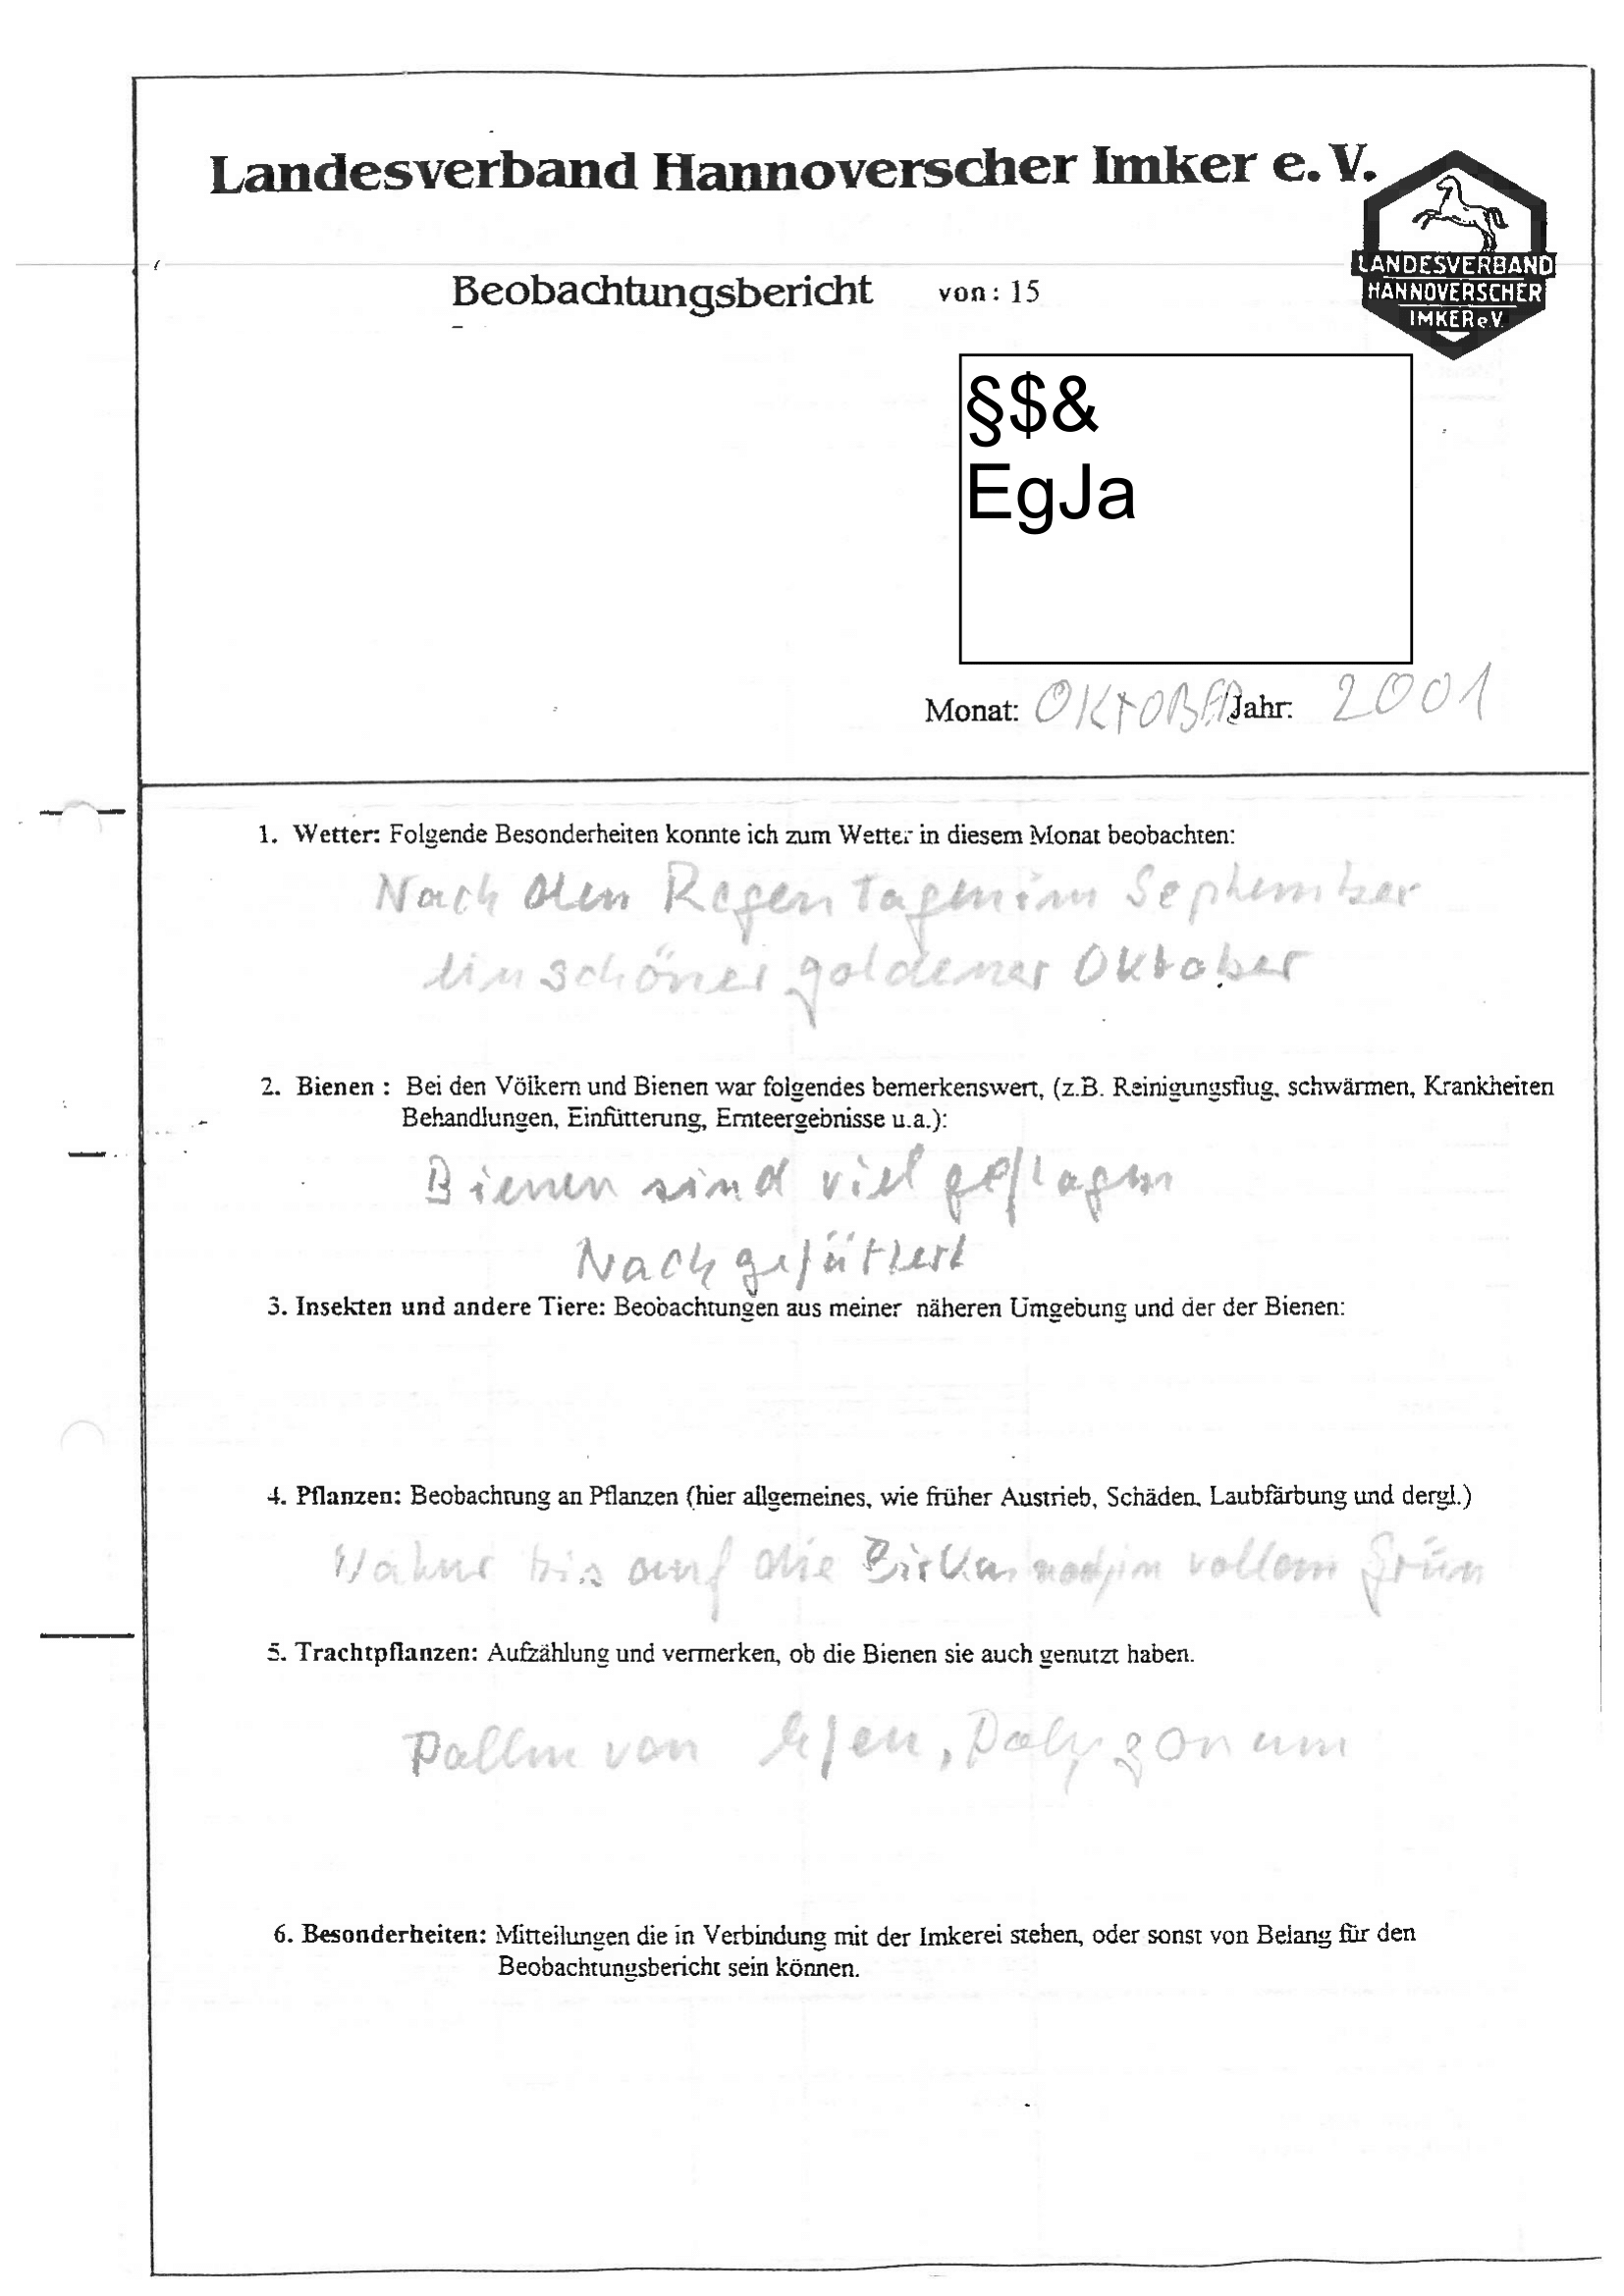 Landesverband Hannoverscher Imker e. V.
LANDESVERBAND
HANNOVERSCHER
IMKER e.V.
Beobachtungsbericht von: 15
§$&
EgJa
Monat: OKTOBER Jahr: 2001
1. Wetter: Folgende Besonderheiten konnte ich zum Wetter in diesem Monat beobachten:
Nach den Regentagen im September
ein schöner goldener Oktober
2. Bienen : Bei den Völkern und Bienen war folgendes bemerkenswert, (z.B. Reinigungsflug, schwärmen, Krankheiten
Behandlungen, Einfütterung, Ernteergebnisse u.a.):
Bienen sind viel geflogen
Nachgefüttert
3. Insekten und andere Tiere: Beobachtungen aus meiner näheren Umgebung und der der Bienen:
4. Pflanzen: Beobachtung an Pflanzen (hier allgemeines, wie früher Austrieb, Schäden, Laubfärbung und dergl.)
Natur bis auf die Birken noch in vollem Grün
5. Trachtpflanzen: Aufzählung und vermerken, ob die Bienen sie auch genutzt haben.
Pollen von Efeu, Polygonum
6. Besonderheiten: Mitteilungen die in Verbindung mit der Imkerei stehen, oder sonst von Belang für den
Beobachtungsbericht sein können.